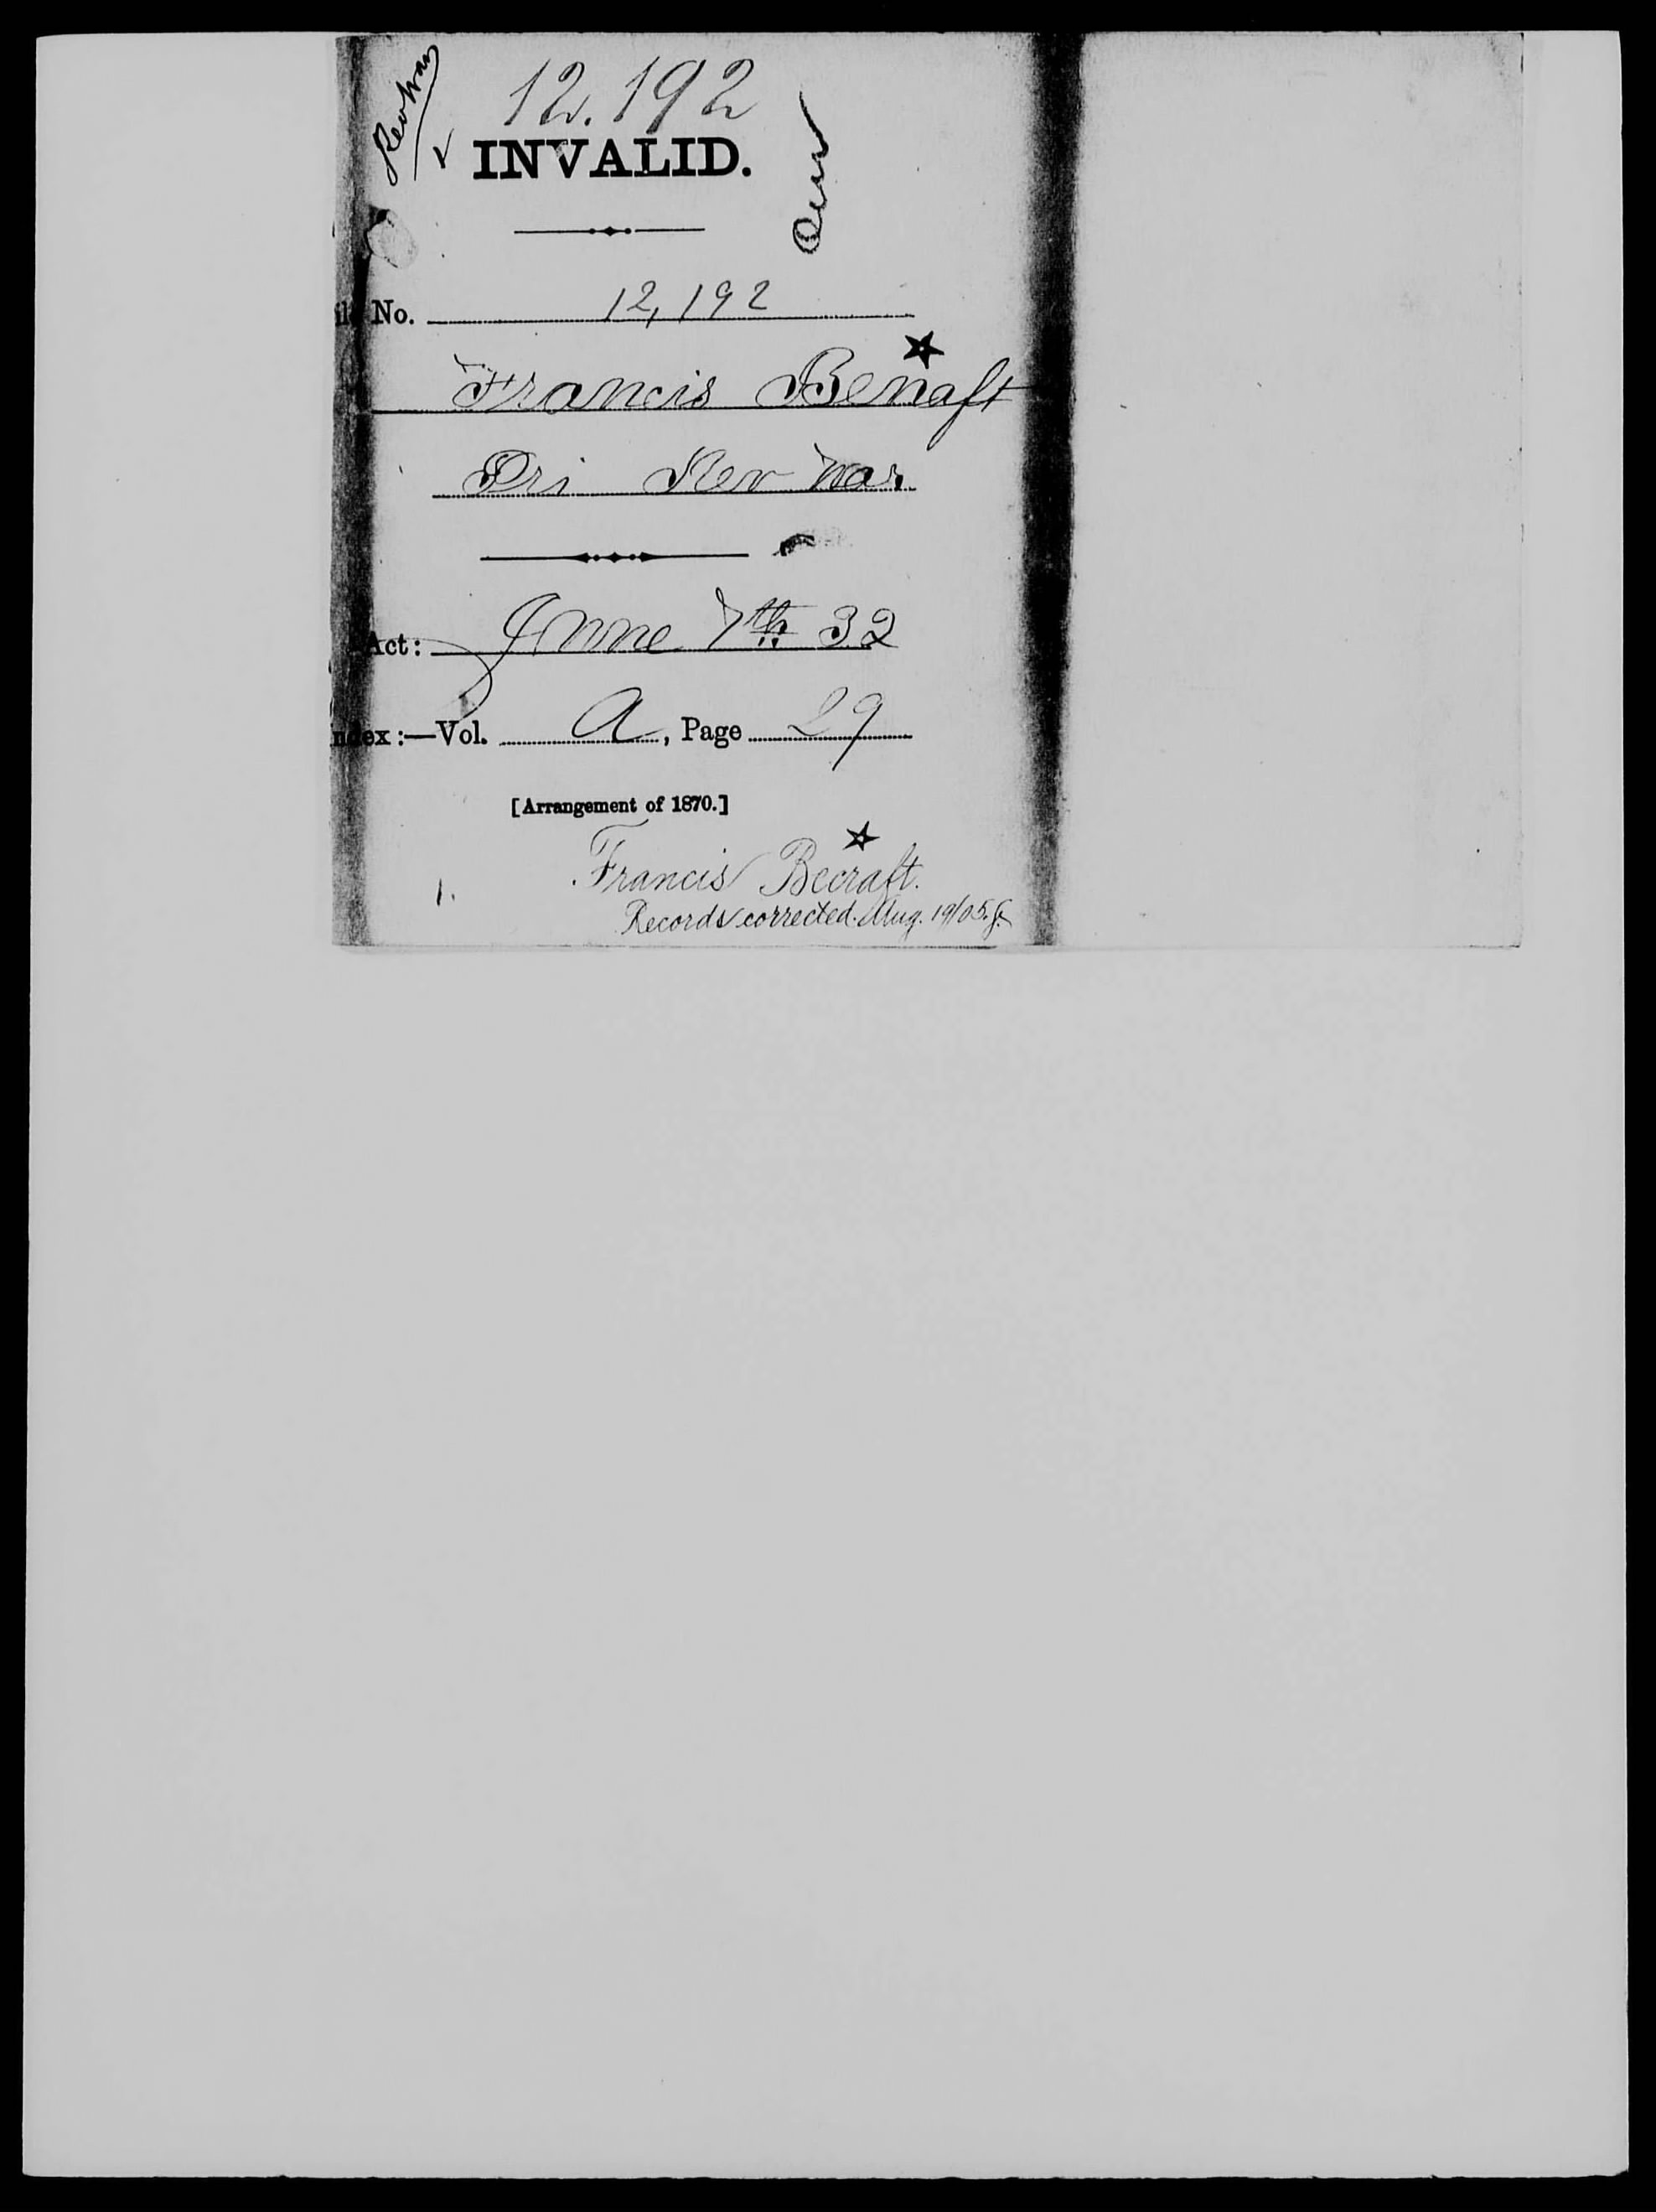 Rev War
12.192
INVALID.
No. 12,192
Francis Benaft
Pri Rev War.
Act: June 7th 32
ndex:—Vol. A, Page 29
[Arrangement of 1870.]
Francis Becraft.
1.
Records corrected. Aug. 19/05. J.